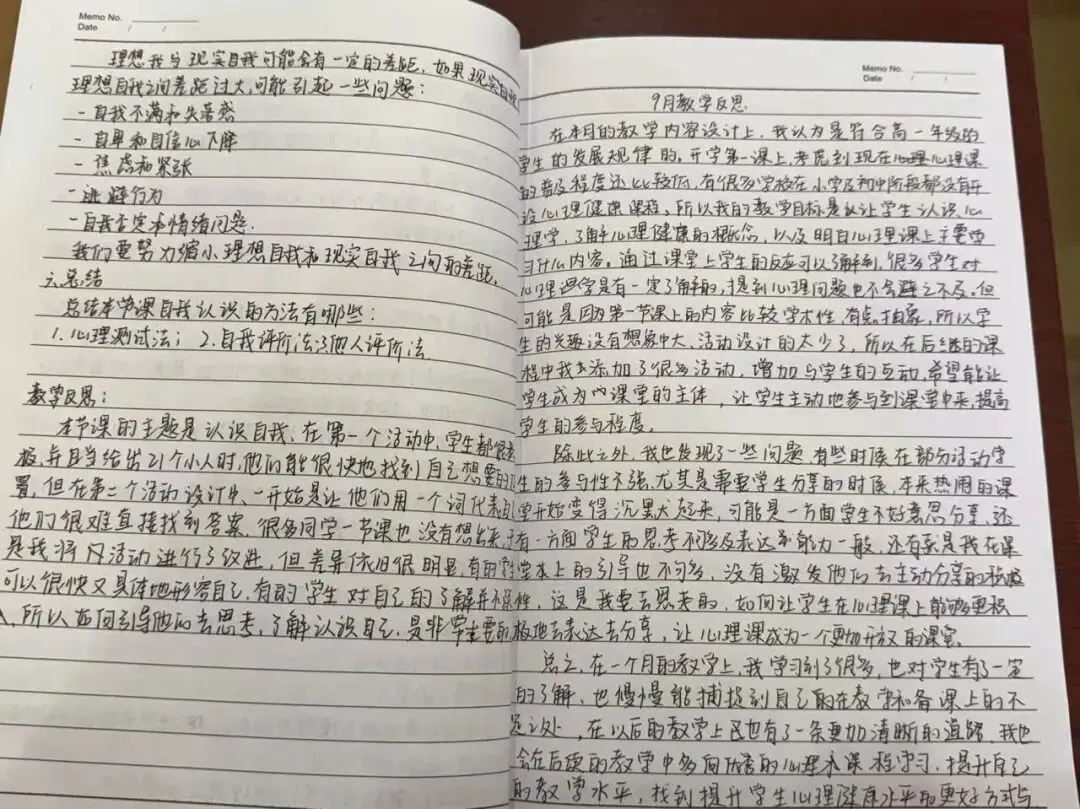 Memo No.
Date / /
理想我与现实自我可能会有一定的差距,如果现实自我
理想自我之间差距过大,可能引起一些问题:
- 自我不满和失落感
- 自卑和自信心下降
- 焦虑和紧张
- 逃避行为
- 自我否定和情绪问题.
我们要努力缩小理想自我和现实自我之间的差距.
六.总结
总结本节课自我认识的方法有哪些:
1.心理测试法; 2.自我评价法;3他人评价法
教学反思:
本节课的主题是认识自我,在第一个活动中,学生都很
极,并且当给出21个小人时,他们能很快地找到自己想要的
置,但在第二个活动设计中,一开始是让他们用一个词代表
他们很难直接找到答案,很多同学一节课也没有想出来,于
是我将活动进行了改进,但差异依旧很明显,有的学
可以很快又具体地形容自己,有的学生对自己的了解并不
所以如何引导他们去思考,了解认识自己,是非常重要的
Memo No.
Date / /
9月教学反思
在本月的教学内容设计上,我认为是符合高一年级的
学生的发展规律的,开学第一课上,考虑到现在心理心理课
的普及程度还比较低,有很多学校在小学及初中阶段都没有开
设心理健康课程,所以我的教学目标是以让学生认识心
理学,了解心理健康的概念,以及明白心理课上主要学
习什么内容。通过课堂上学生的反应可以了解到,很多学生对
心理学是有一定了解的,提到心理问题也不会避之不及。但
可能是因为第一节课上的内容比较学术性,有点抽象,所以学
生的兴趣没有想象中大,活动设计的太少了,所以在后继的课
程中我添加了很多活动,增加与学生的互动,希望能让
学生成为课堂的主体,让学生主动地参与到课堂中来,提高
学生的参与程度。
除此之外,我也发现了一些问题,有些时候在部分活动学
生的参与性不强,尤其是需要学生分享的时候,本来热闹的课
堂开始变得沉默起来,可能是一方面学生不好意思分享,还
有一方面学生的思考不够及表达能力一般,还有就是我在课
堂上的引导也不够多,没有激发他们去主动分享的积极
性,这是我要去思考的,如何让学生在心理课上能够更积
极地去表达去分享,让心理课成为一个更加开放的课堂。
总之,在一个月的教学上,我学习到了很多,也对学生有了一定
的了解,也慢慢能捕捉到自己的在教学和备课上的不
足之处,在以后的教学上也有了一条更加清晰的道路,我也
会在后续的教学中多向优秀的心理课程学习,提升自己
的教学水平,找到提升学生心理健康水平的更好方式与